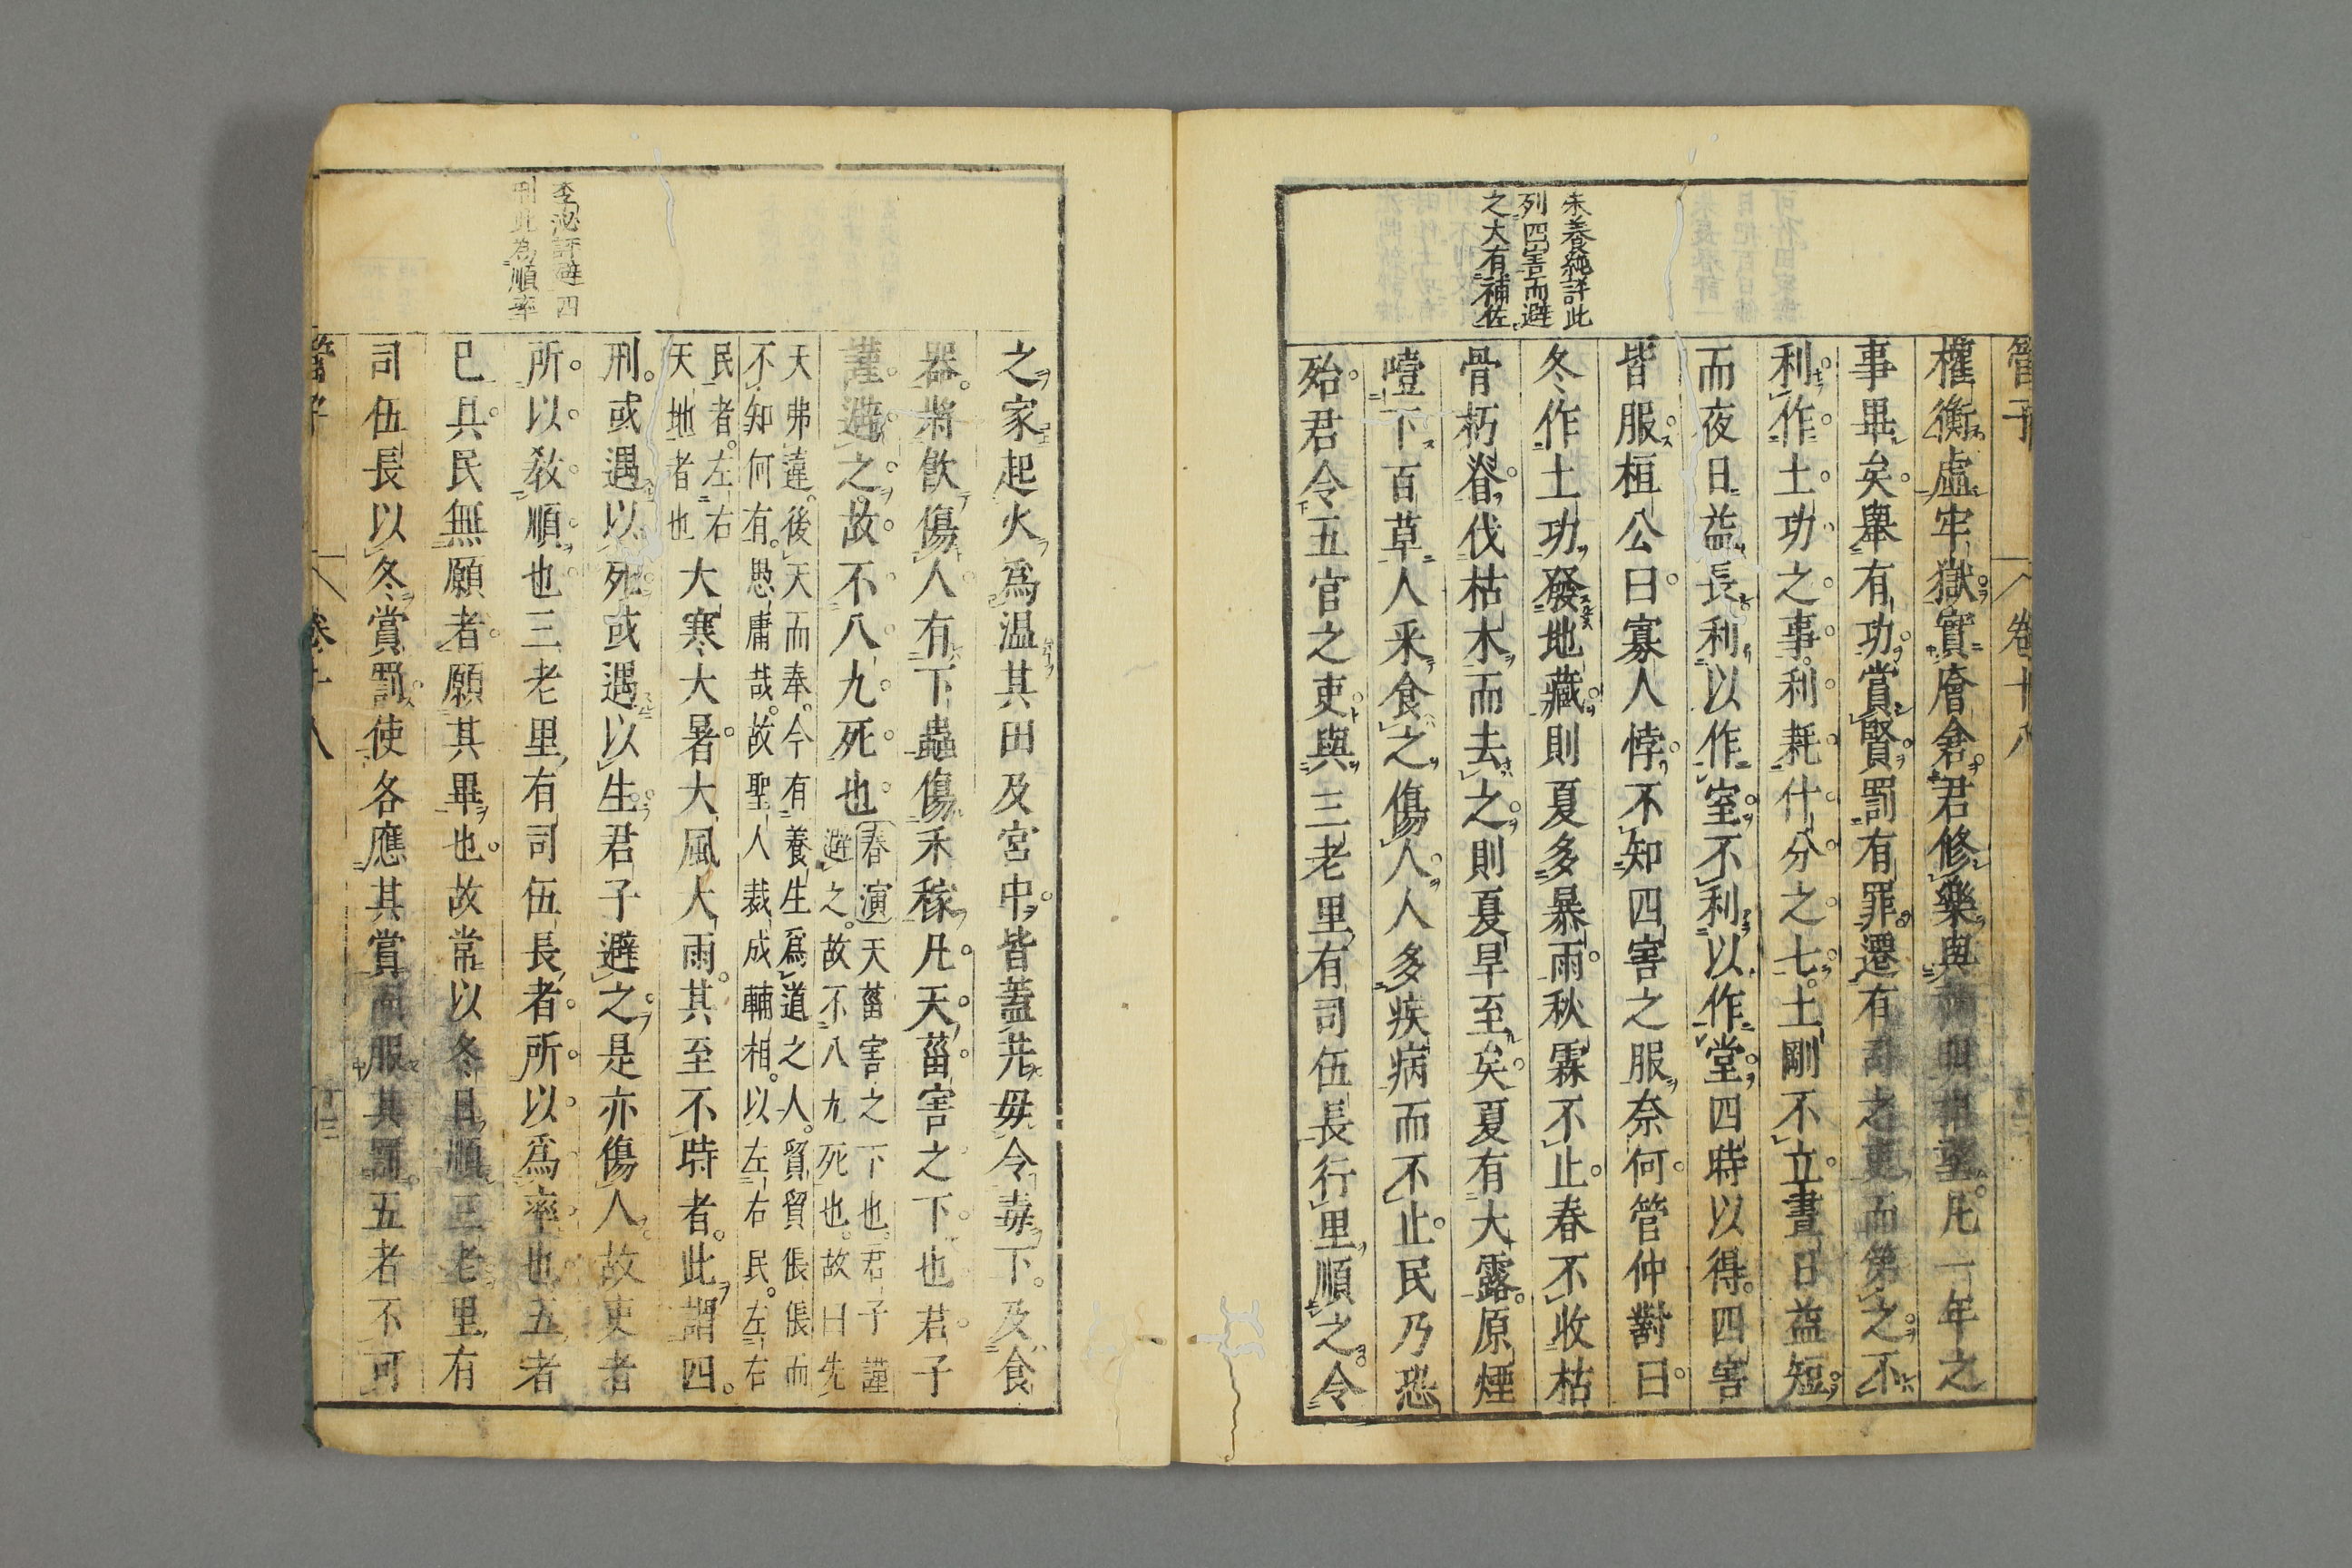 管子
卷十八
朱養純評此
列四害而避
之大有補佐
權衡虛牢獄實廥倉君修樂與神明相望凡一年之
事畢矣舉有功賞賢罰有罪遷有司之吏而第之不
利作土功之事利耗什分之七土剛不立晝日益短
而夜日益長利以作室不利以作堂四時以得四害
皆服桓公曰寡人悖不知四害之服奈何管仲對曰
冬作土功發地藏則夏多暴雨秋霖不止春不收枯
骨朽脊伐枯木而去之則夏旱至矣夏有大露原煙
噎下百草人采食之傷人人多疾病而不止民乃恐
殆君令五官之吏與三老里有司伍長行里順之令
之家起火爲温其田及宮中皆蓋井毋令毒下及食
器將飲傷人有下蟲傷禾稼凡天菑害之下也君子
謹避之故不八九死也
春演天菑害之下也君子謹
避之故不八九死也故曰先
天弗違後天而奉今有養生爲道之人貿貿倀倀而
不知何有愚庸哉故聖人裁成輔相以左右民左右
民者左右
天地者也
大寒大暑大風大雨其至不時者此謂四
李泌評避四
刑此為順率
刑或遇以死或遇以生君子避之是亦傷人故吏者
所以教順也三老里有司伍長者所以爲率也五者
已具民無願者願其畢也故常以冬日順三老里有
司伍長以冬賞罰使各應其賞而服其罰五者不可
管子
卷十八
十三